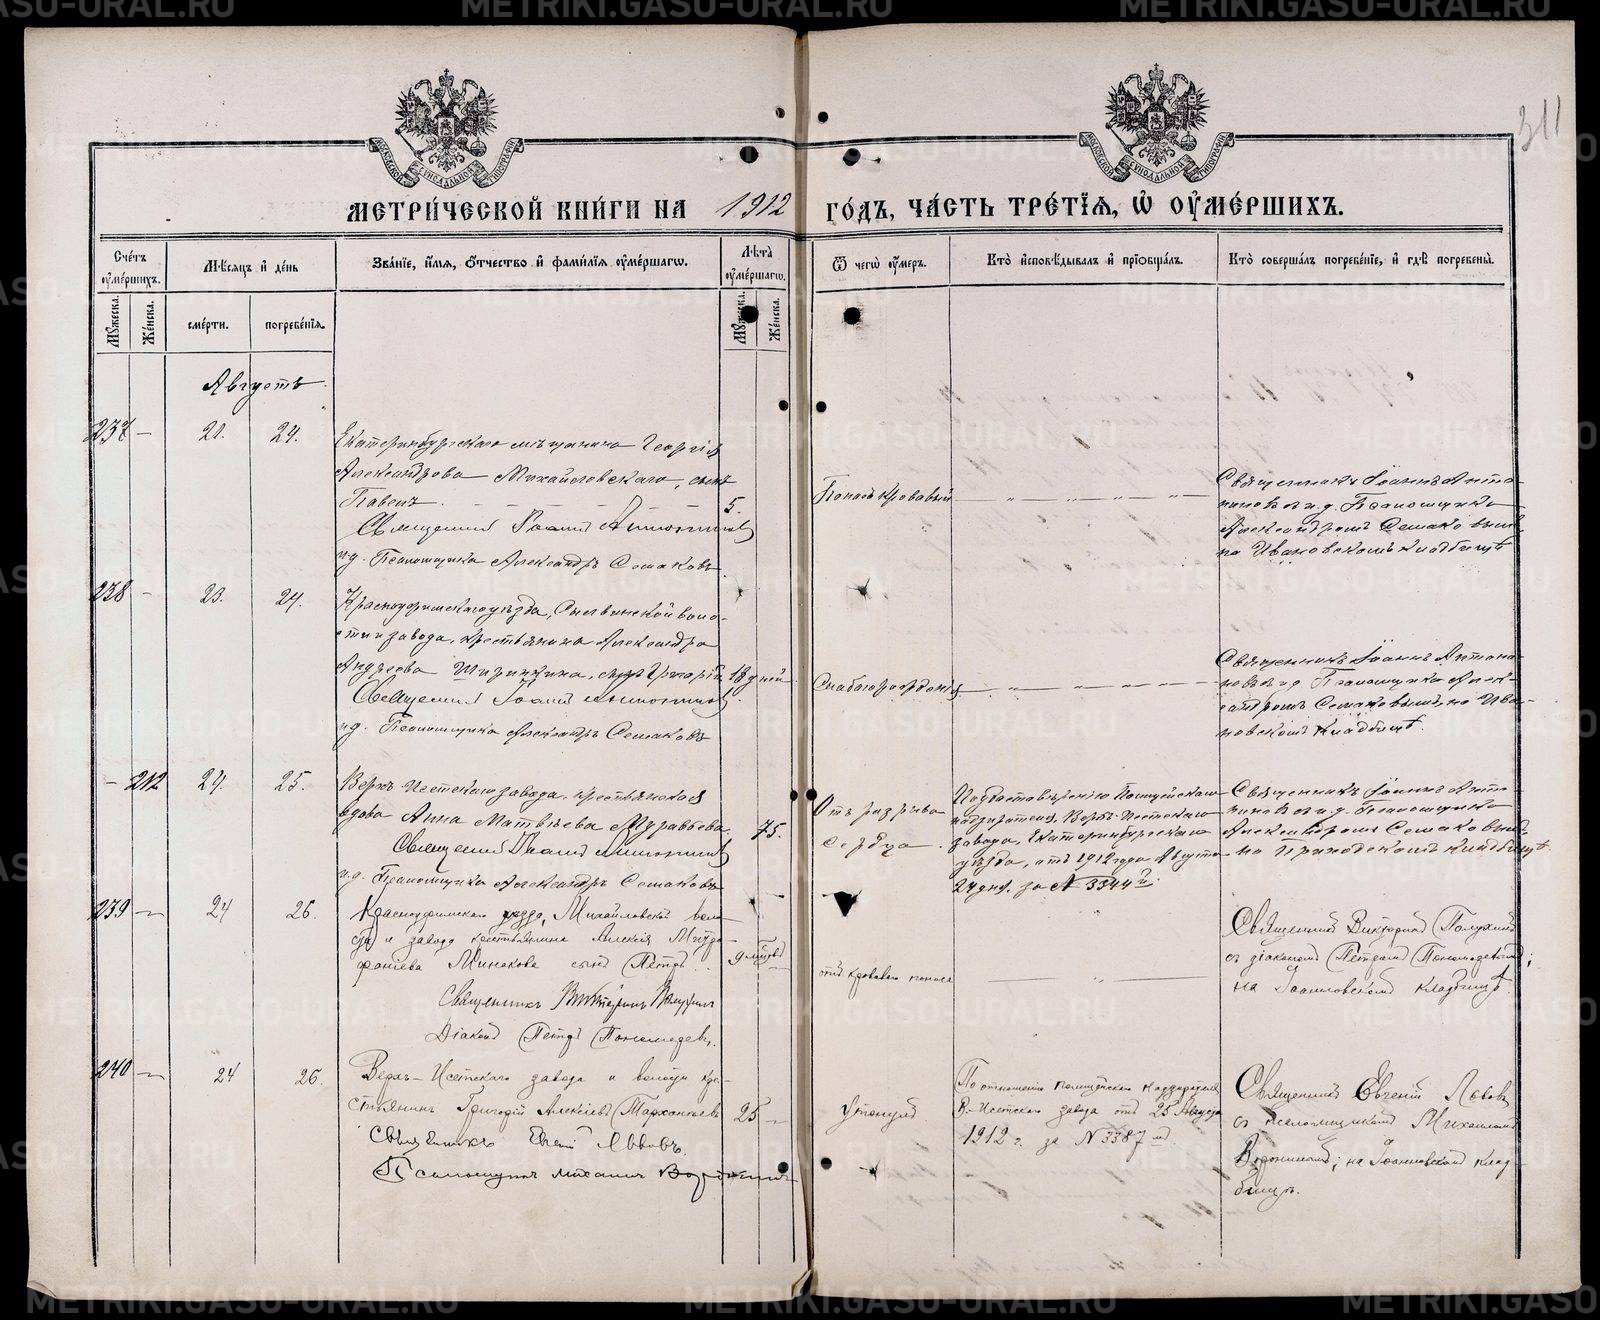 311
МОСКОВСКОЙ СѴНОДАЛЬНОЙ ТИПОГРАФІИ
МОСКОВСКОЙ СѴНОДАЛЬНОЙ ТИПОГРАФІИ
МЕТРИ́ЧЕСКОЙ КНИ́ГИ НА 1912 ГО́ДЪ, ЧА́СТЬ ТРЕ́ТІѦ, Ѡ ОУМЕ́РШИХЪ.
Сче́тъ оумéршихъ.
Мѣсяцъ и день
Званіе, имя, отчество и фамилія оумершагѡ.
Лѣта оумершагѡ.
Ѿ чегѡ оумеръ.
Кто исповѣдывалъ и пріобщалъ.
Кто совершалъ погребеніе, и гдѣ погребены.
Мужеска.
Женска.
смерти.
погребенія.
Мужеска.
Женска.
Августъ.
237 — 21. 24.
Екатеринбургскаго мѣщанина Георгія
Александрова Михайловскаго, сынъ
Павелъ
5.
Священникъ Іоаннъ Антониновъ
и.д. Псаломщика Александръ Семаковъ
Поносъ кровавый
Священникъ Іоаннъ Анто-
ниновъ и.д. Псаломщика
Александромъ Семаковымъ
на Ивановскомъ кладбищѣ
238 — 23. 24.
Красноуфимскаго уѣзда, Сылвинской воло-
сти и завода, крестьянина Александра
Андреева Ширинкина, сынъ Григорій
18 дней
Священникъ Іоаннъ Антониновъ
и.д. Псаломщика Александръ Семаковъ
Слаборожденія
Священникъ Іоаннъ Антони-
новъ и.д. Псаломщика Алек-
сандромъ Семаковымъ, на Ива-
новскомъ кладбищѣ.
— 212 24. 25.
Верхъ-Исетскаго завода, крестьянская
вдова Анна Матвѣева Муравьева
75.
Священникъ Іоаннъ Антониновъ
и.д. Псаломщика Александръ Семаковъ
Отъ разрыва
сердца.
По удостовѣренію Полицейскаго
надзирателя Верхъ-Исетскаго
завода, Екатеринбургскаго
уѣзда, отъ 1912 года Августа
24 дня. за № 3344й.
Священникъ Іоаннъ Анто-
ниновъ и.д. Псаломщика
Александромъ Семаковымъ
на Приходскомъ кладбищѣ.
239 — 24 26.
Красноуфимскаго уѣзда, Михайловской воло-
сти и завода крестьянина Алексія Митро-
фанова Минакова сынъ Петръ
9 мѣсяц.
Священникъ Викторинъ
Діаконъ Петръ Пономаревъ.
отъ кроваваго поноса
Священникъ Викторинъ
съ діакономъ Петромъ Пономаревымъ;
на Іоанновскомъ кладбищѣ.
240 — 24 26.
Верхъ-Исетскаго завода и волости кре-
стьянинъ Григорій Алексіевъ
25 —
Священникъ Евгеній Львовъ.
Псаломщикъ Михаилъ Воронинъ
Утонулъ
По отношенію полицейскаго надзирателя
В.-Исетскаго завода отъ 25 Августа
1912 г. за № 3387мъ.
Священникъ Евгеній Львовъ
съ псаломщикомъ Михаиломъ
Воронинымъ; на Іоанновскомъ клад-
бищѣ.
METRIKI.GASO-URAL.RU